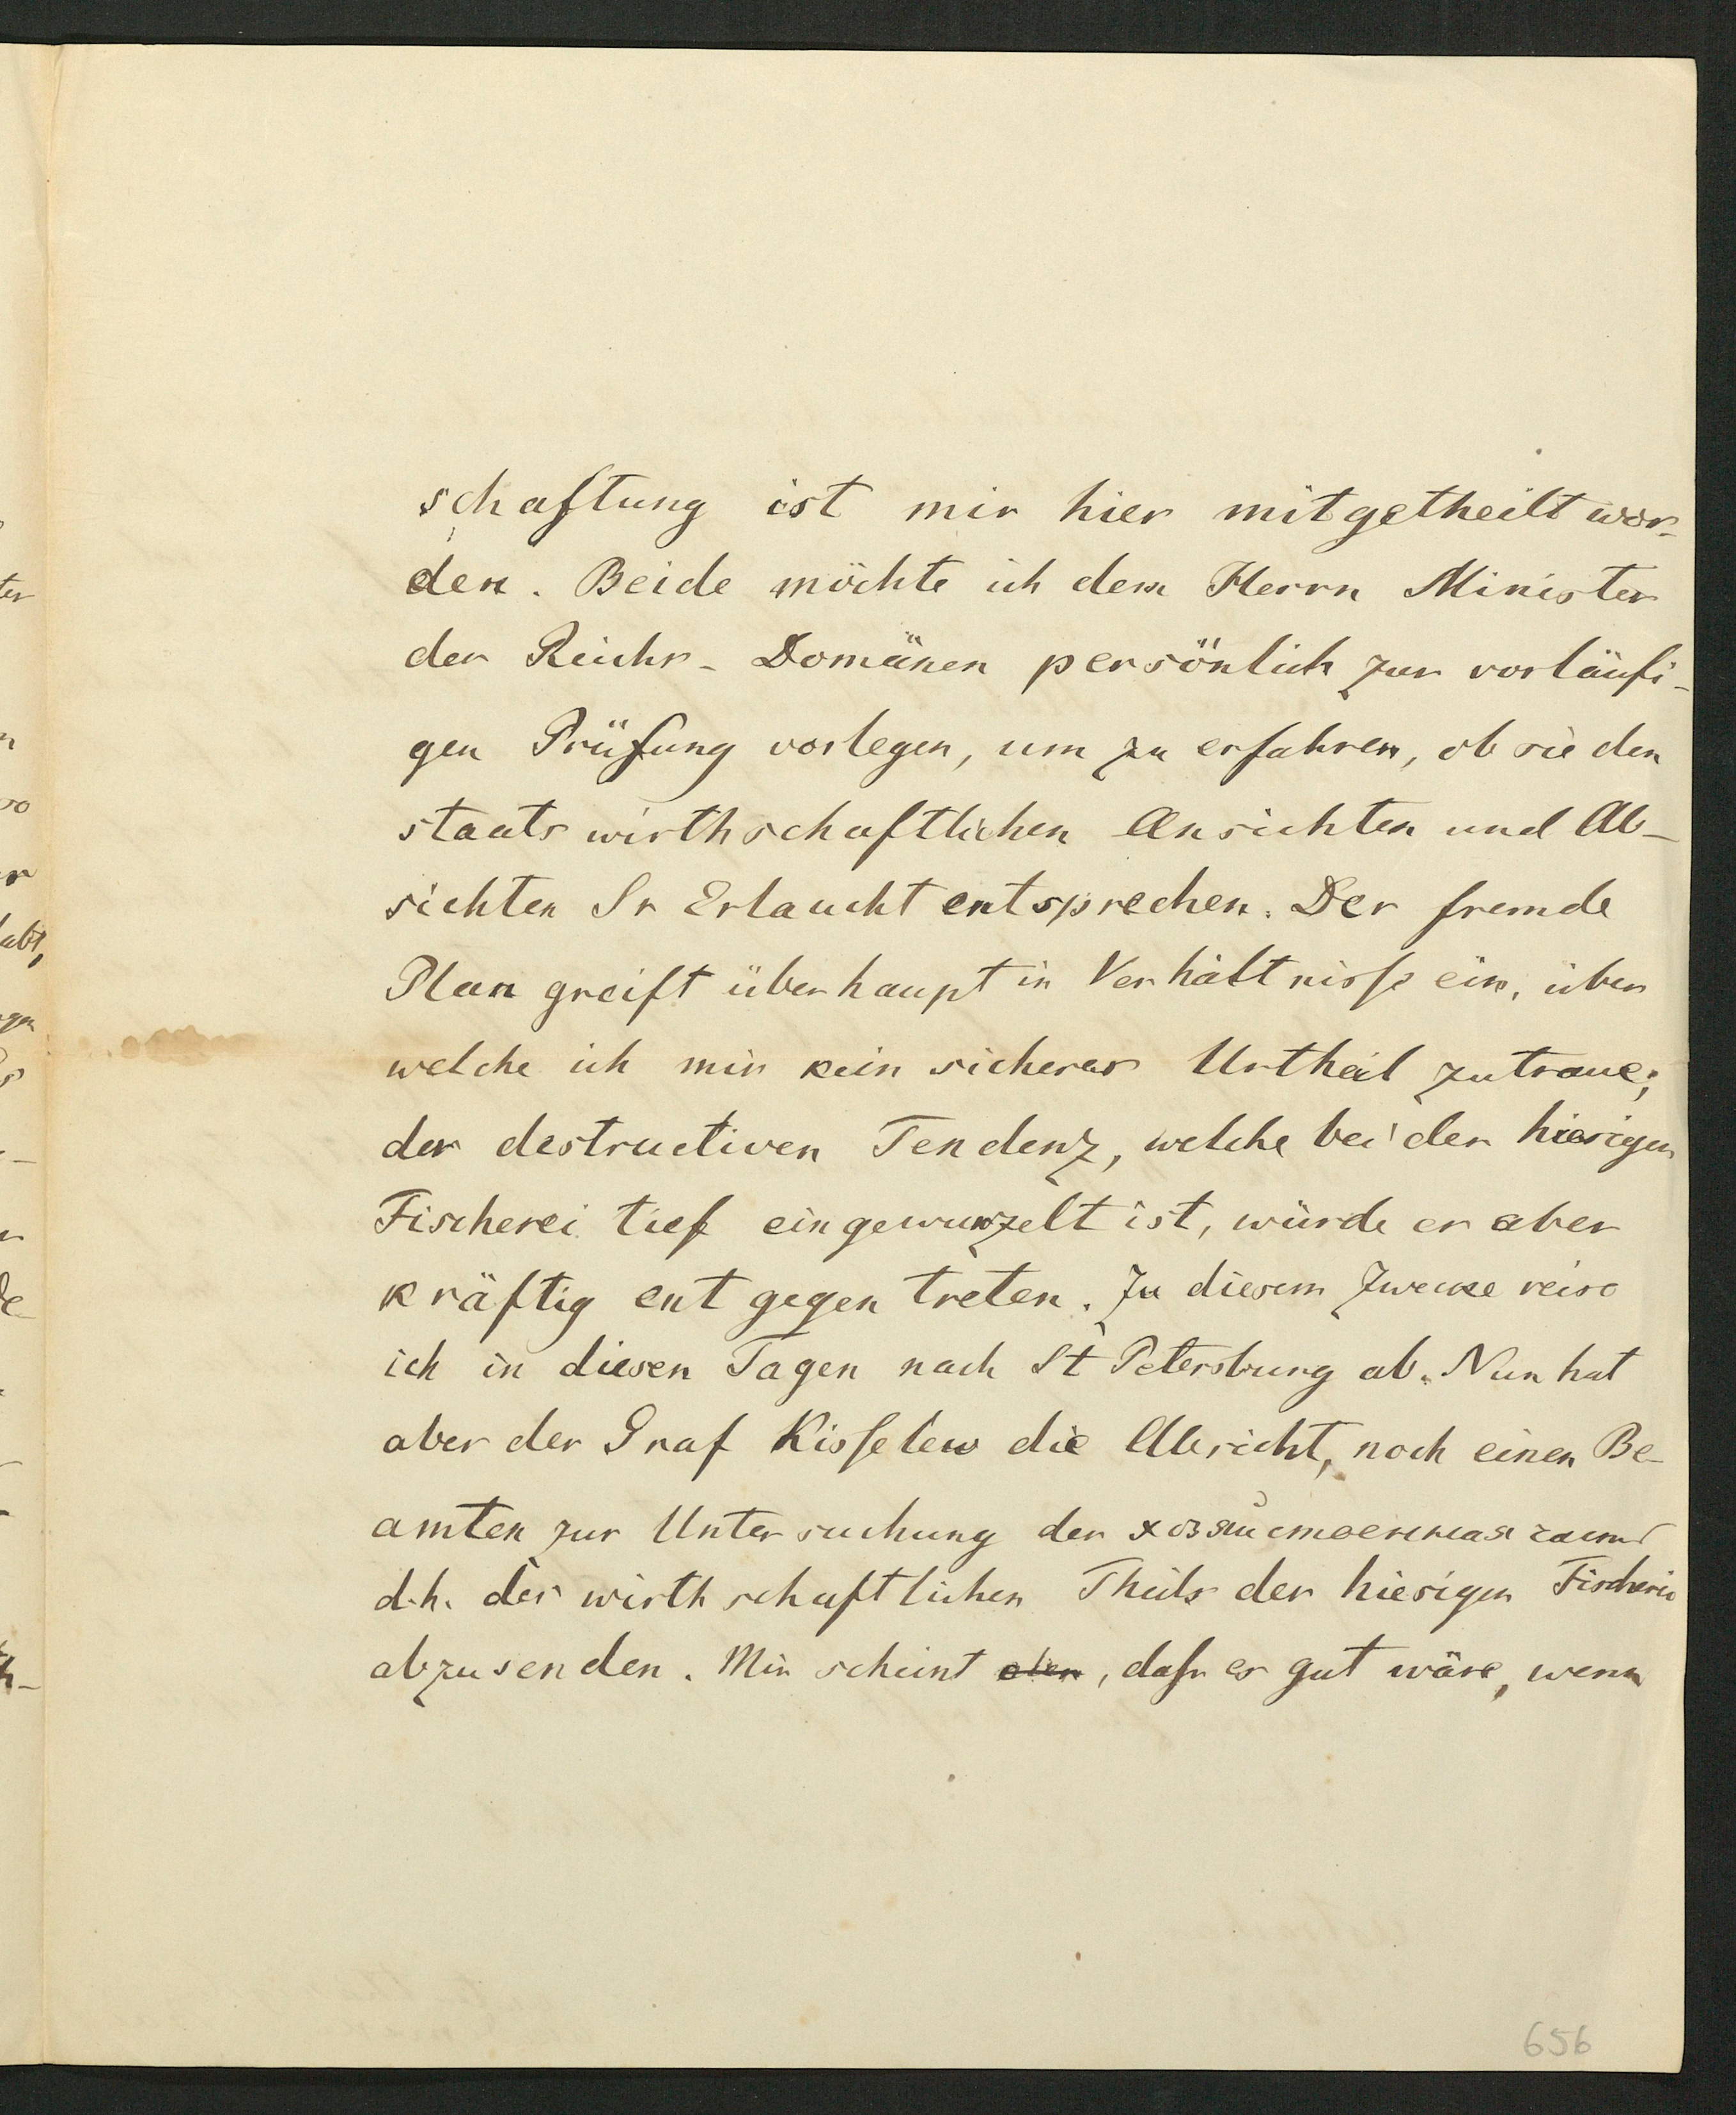 schaftung ist mir hier mitgetheilt wor-
den. Beide möchte ich dem Herrn Minister
der Reichs-Domänen persönlich zur vorläufi-
gen Prüfung vorlegen, um zu erfahren, ob sie den
staatswirthschaftlichen Ansichten und Ab-
sichten Sr Erlaucht entsprechen. Der fremde
Plan greift überhaupt in Verhältnisse ein, über
welche ich mir kein sicheres Urtheil zutraue;
der destructiven Tendenz, welche bei der hiesigen
Fischerei tief eingewurzelt ist, würde er aber
kräftig entgegen treten. Zu diesem Zwecke reise
ich in diesen Tagen nach St Petersburg ab. Nun hat
aber der Graf Kisselew die Absicht, noch einen Be-
amten zur Untersuchung der хозяйственная часть
d.h. des wirthschaftlichen Theils der hiesigen Fischerei
abzusenden. Mir scheint aber, dass es gut wäre, wenn
656